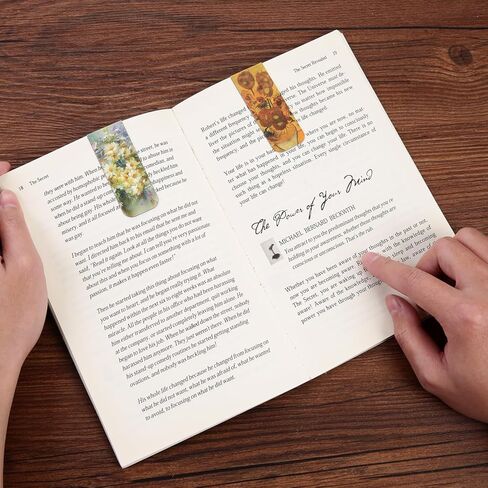 18 The Secret
they were with him. When he
street, he was
accosted by homophobic
abuse him in
some way. He wanted to be
comedian, and
when he did a stand up com
heckled him
about being gay. His whole
ked because he
was gay.
I began to teach him that he was focusing on what he did not
want. I directed him back to his email that he sent me and
said, "Read it again. Look at all the things you do not want
that you're telling me about. I can tell you're very passionate
about this and when you focus on something with a lot of
passion, it makes it happen even faster!"
Then he started taking this thing about focusing on what
you want to heart, and he began really trying it. What
happened within the next six to eight weeks was an absolute
miracle. All the people in his office who had been harassing
him either transferred to another department, quit working
at the company, or started completely leaving him alone. He
began to love his job. When he walked down the street, nobody
harassed him anymore. They just weren't there. When he did
his stand-up comedy routines he started getting standing
ovations, and nobody was heckling him!
His whole life changed because he changed from focusing on
what he did not want, what he was afraid of, what he wanted
to avoid, to focusing on what he did want.
The Secret Revealed 19
Robert's life changed
his thoughts. He emitted
a different frequency
Universe. The Universe must de-
liver the pictures of
frequency, no matter how impossible
the situation might
thoughts became his new
frequency, and
life changed.
Your life is in your
where you are now, no mat-
ter what has happened in your life, you can begin to consciously
choose your thoughts, and you can change your life. There is no
such thing as a hopeless situation. Every single circumstance of
your life can change!
The Power of Your Mind
MICHAEL BERNARD BECKWITH
You attract to you the predominant thoughts that you're
holding in your awareness, whether those thoughts are
conscious or unconscious. That's the rub.
Whether you have been aware of your thoughts in the past or not,
now you are becoming aware.
with the knowledge of
The Secret, you are waking up
sleep and becoming
aware! Aware of the knowledge,
law, aware of the
power you have through your thoughts.